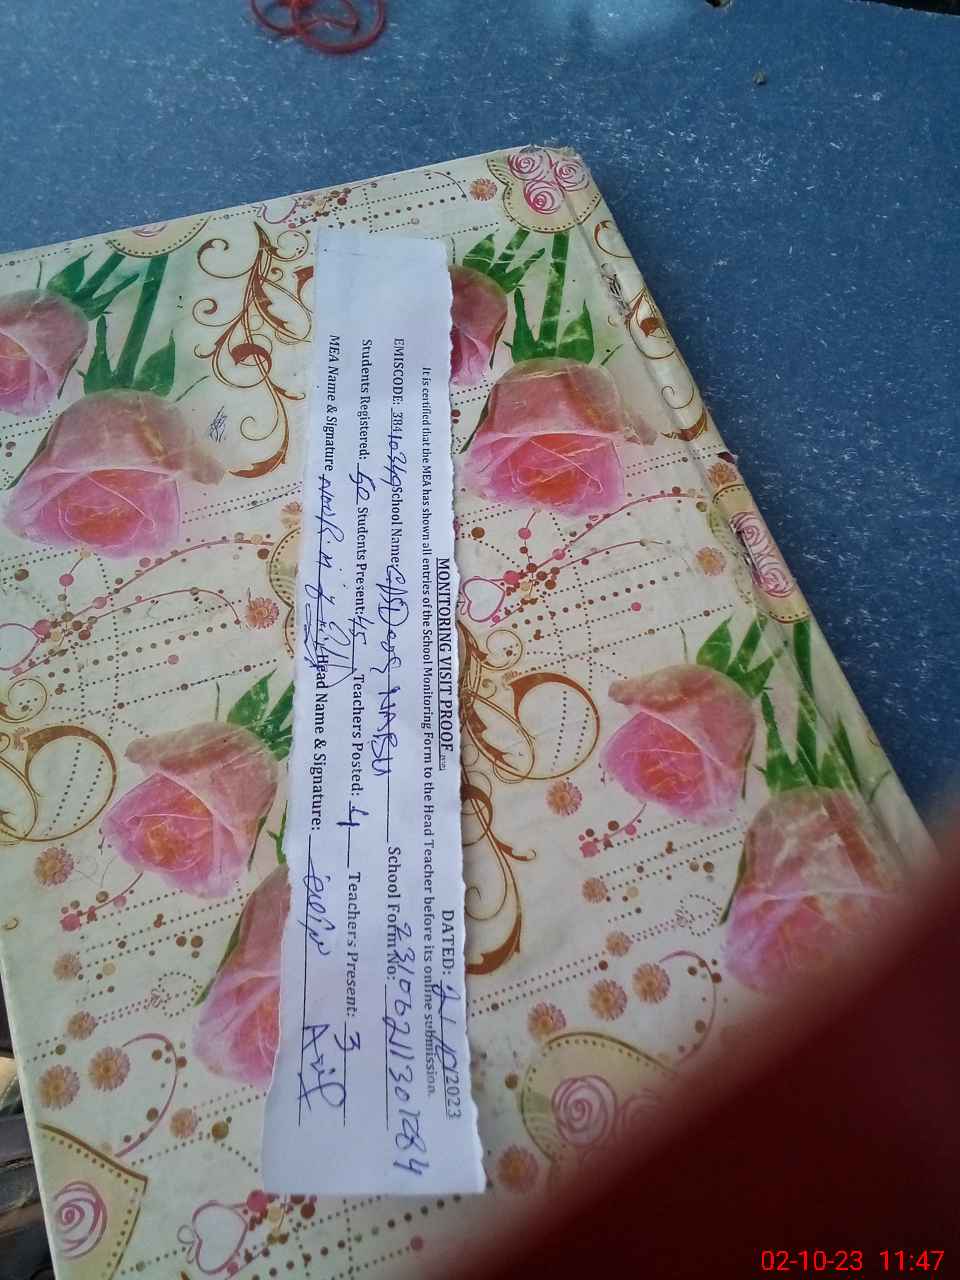 MONITORING VISIT PROOF DATED: 2/10/2023
It is certified that the MEA has shown all entries of the School Monitoring Form to the Head Teacher before its online submission.
EMISCODE: 38410349 School Name: School Form No: 23106211301284
Students Registered: 50 Students Present: 45 Teachers Posted: 4 Teachers Present: 3
MEA Name & Signature Head Name & Signature: Asif
02-10-23 11:47